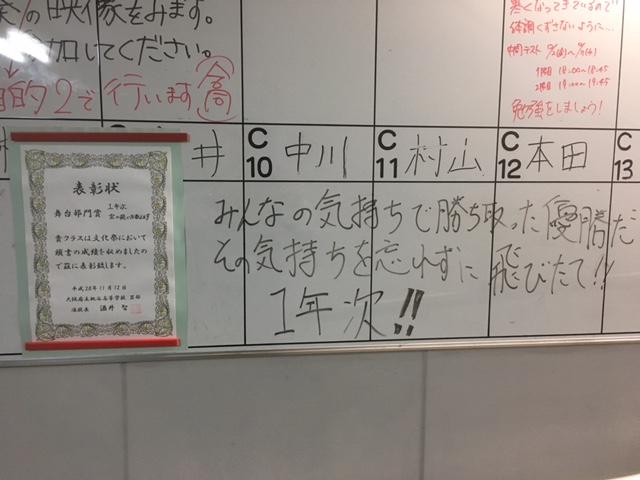 の映像をみます。
加してください。
的2で行います
寒くなってきているので
体調くずさないように…
中間テスト
1限目 18:00〜18:45
2限目 19:00〜19:45
勉強をしましょう!
井
C10 中川
C11 村山
C12 本田
C13
表彰状
1年次
舞台部門賞
貴クラスは文化祭において
頭書の成績を収めましたの
で茲に表彰致します。
平成28年11月12日
准校長 酒井
みんなの気持ちで勝ち取った優勝だ
その気持ちを忘れずに 飛びたて!!
1年次!!